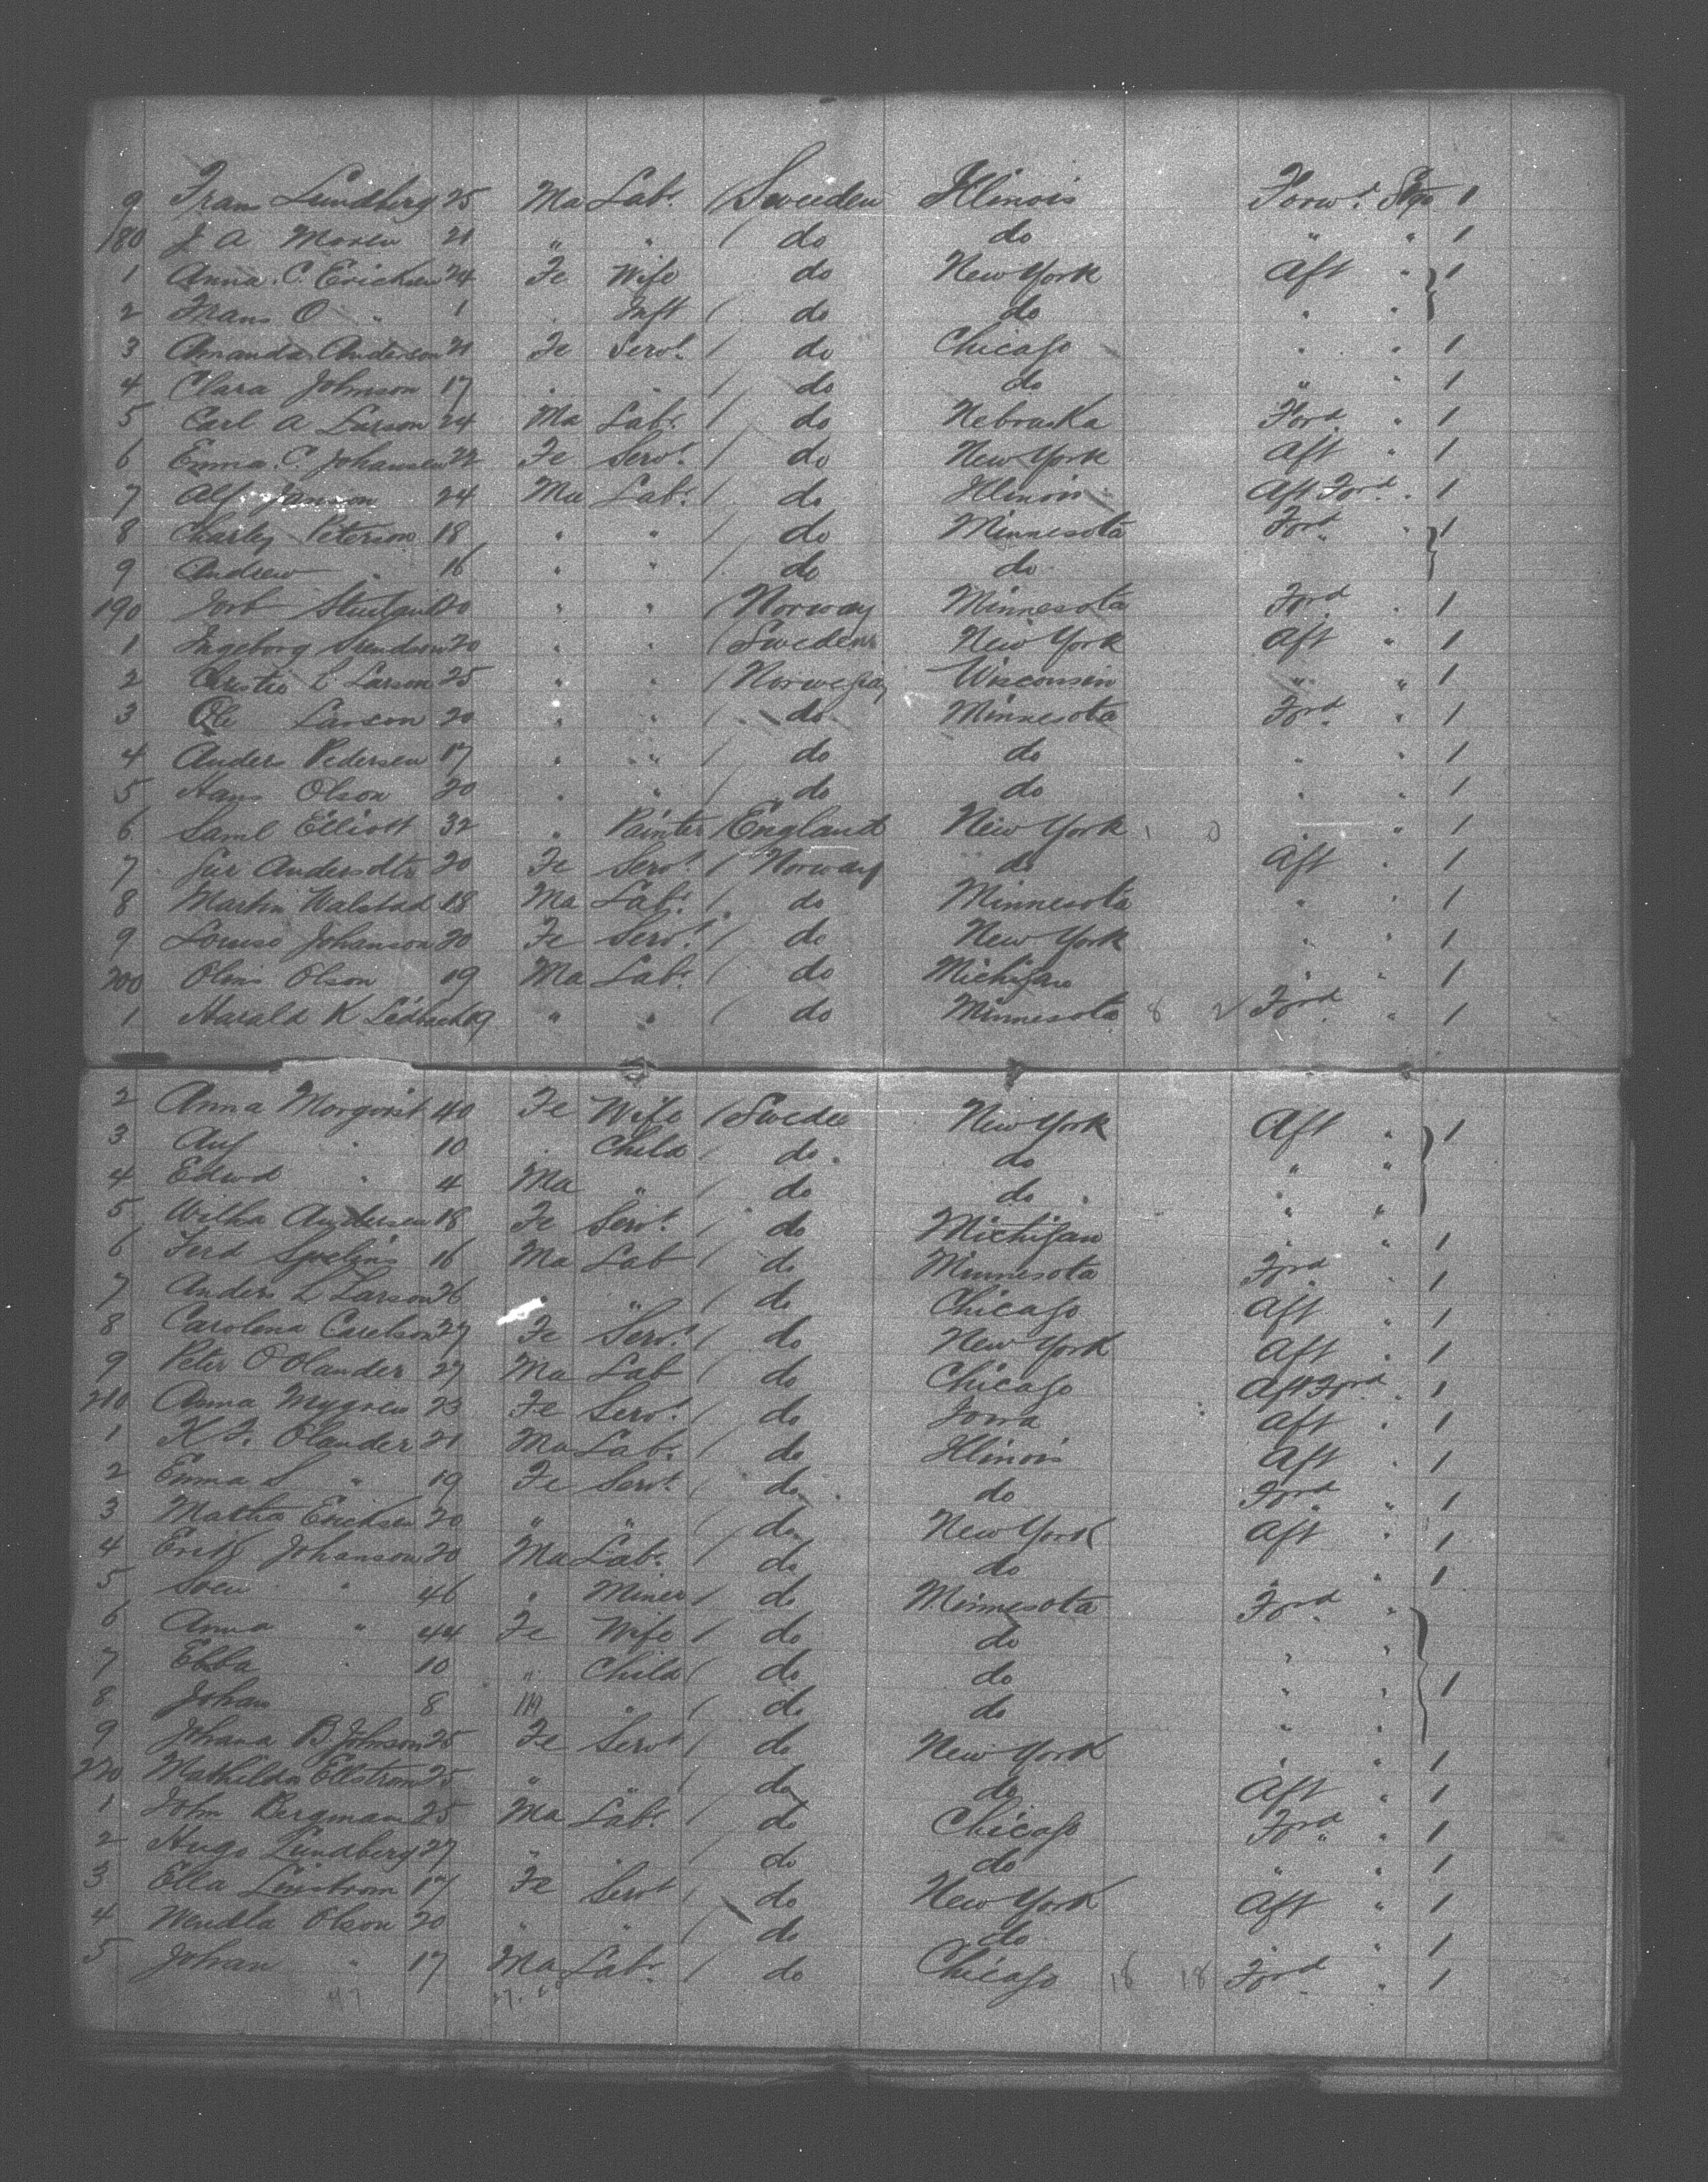 9 Frans Lundberg 25 Ma Labr. / Sweden Illinois Forwd. Stge 1
180 J A Moren 21 " " / do do " " 1
1 Anna. C. Ericksen 24 Fe Wife do New York Aft " 1
2 Frans O " 1 Inft / do do " "
3 Amanda Anderson 21 Fe Servt. / do Chicago " " 1
4 Clara Johnson 17 " " / do do " " 1
5 Carl A Larson 24 Ma Labr. / do Nebraska Ford " 1
6 Emma. C. Johansen 22 Fe Servt. / do New York Aft " 1
7 Alf Janson 24 Ma Labr. / do Illinois Aft Ford " 1
8 Charley Peterson 18 " " / do Minnesota Ford " 1
9 Andrew " 16 " " / do do
190 " " / Norway Minnesota Ford " 1
1 Ingeborg Svendsen 20 " " / Sweden New York Aft " 1
2 L Larson 25 " " / Norwegian Wisconsin " " 1
3 Ole Larson 20 " " / do Minnesota Ford " 1
4 Anders Pedersen 17 " " / do do " " 1
5 Hans Olson 20 " " / do do " " 1
6 Saml Elliott 32 " Painter / England New York 1 0 " " 1
7 Andersdtr 20 Fe Servt. / Norway do Aft " 1
8 Martin Walstad 18 Ma Labr. / do Minnesota " " 1
9 Louise Johanson 20 Fe Servt. / do New York " " 1
200 Olson 19 Ma Labr. / do Michigan " " 1
1 Harald K 19 " " / do Minnesota 8 2 Ford " 1
2 Anna Morgorist 40 Fe Wife / Sweden New York Aft " 1
3 Aug " 10 " Child / do do " "
4 Edwd " 4 Ma " / do do " "
5 Wilha Andersen 18 Fe Servt. / do Michigan " " 1
6 Ferd 16 Ma Lab / do Minnesota Ford " 1
7 Anders L Larson 26 " " / do Chicago Aft " 1
8 Carolena Carelson 27 Fe Servt. / do New York Aft " 1
9 Peter O Olander 27 Ma Lab / do Chicago Aft Ford " 1
210 Anna Mygren 23 Fe Servt. / do Iowa Aft " 1
1 K F. Olander 21 Ma Labr. / do Illinois Aft " 1
2 Emma S " 19 Fe Servt. / do do Ford " 1
3 Matha Ericksen 20 " " / do New York Aft " 1
4 Erik Johanson 20 Ma Labr. / do do " " 1
5 Sven " 46 " Miner / do Minnesota Ford "
6 Anna " 44 Fe Wife / do do " "
7 Ebba " 10 " Child / do do " " 1
8 Johan 8 M " / do do " "
9 Johana B Johnson 25 Fe Servt / do New York " " 1
220 Mathilda Ellstrom 25 " " / do do Aft " 1
1 John Bergman 25 Ma Labr. / do Chicago Ford " 1
2 Hugo Lundberg 27 " " / do do " " 1
3 Ella Linstrom 17 Fe Servt / do New York Aft " 1
4 Wendla Olson 20 " " / do do " " 1
5 Johan " 17 Ma Labr. / do Chicago 18 18 Ford " 1
47